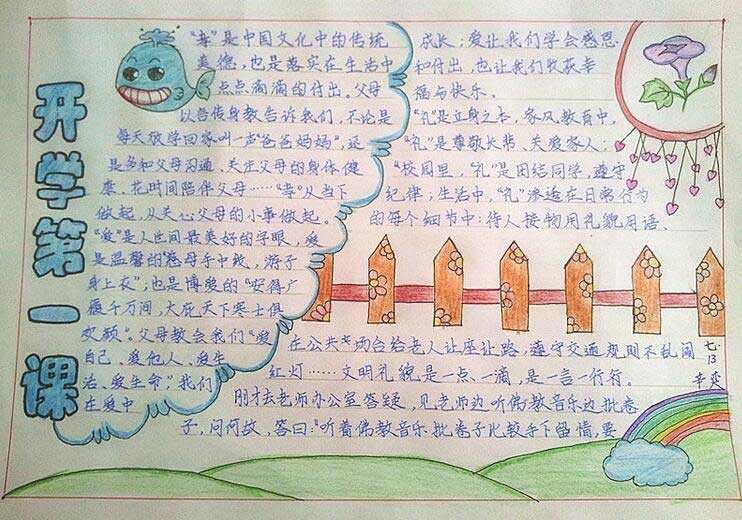 开学第一课
“孝”是中国文化中的传统
美德，也是落实在生活中
点点滴滴的付出。父母
以言传身教告诉我们，不论是
每天放学回家叫一声“爸爸妈妈”，还
是多和父母沟通、关注父母的身体健
康、花时间陪伴父母……“孝”从当下
做起，从关心父母的小事做起。
“爱”是人世间最美好的字眼，爱
是温馨的“慈母手中线，游子
身上衣”；也是博爱的“安得广
厦千万间，大庇天下寒士俱
欢颜”。父母教会我们“爱
自己、爱他人、爱生
活、爱生命”我们
在爱中
成长；爱让我们学会感恩
和付出，也让我们收获幸
福与快乐。
“礼”是立身之本，家风教育中，
“礼”是尊敬长辈、关爱家人；
“校园里，“礼”是团结同学，遵守
纪律；生活中，“礼”渗透在日常行为
的每个细节中：待人接物用礼貌用语、
在公共场台给老人让座让路，遵守交通规则不乱闯
红灯……文明礼貌是一点一滴，是一言一行行。
刚才去老师办公室答疑，见老师边听佛教音乐边批卷
子，问何故，答曰：“听着佛教音乐批卷子比较手下留情，要
七.13